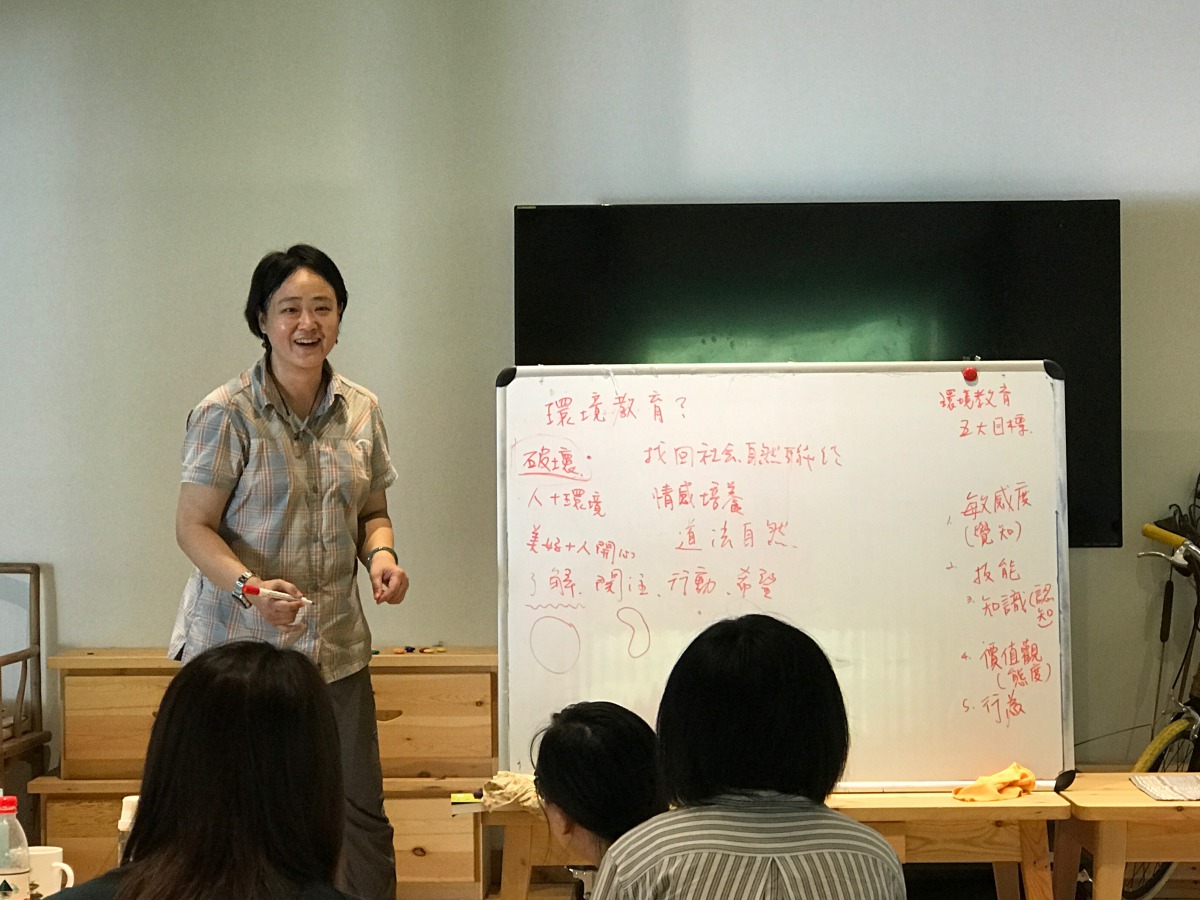 環境教育?
破壞.
找回社会自然聯结
人+環境
情感培養
美好+人開心
道法自然
了解、関注、行動、希望
環境教育
五大目標.
1. 敏感度
(覺知)
2. 技能
3. 知識(認
知)
4. 價值觀
(態度)
5. 行為